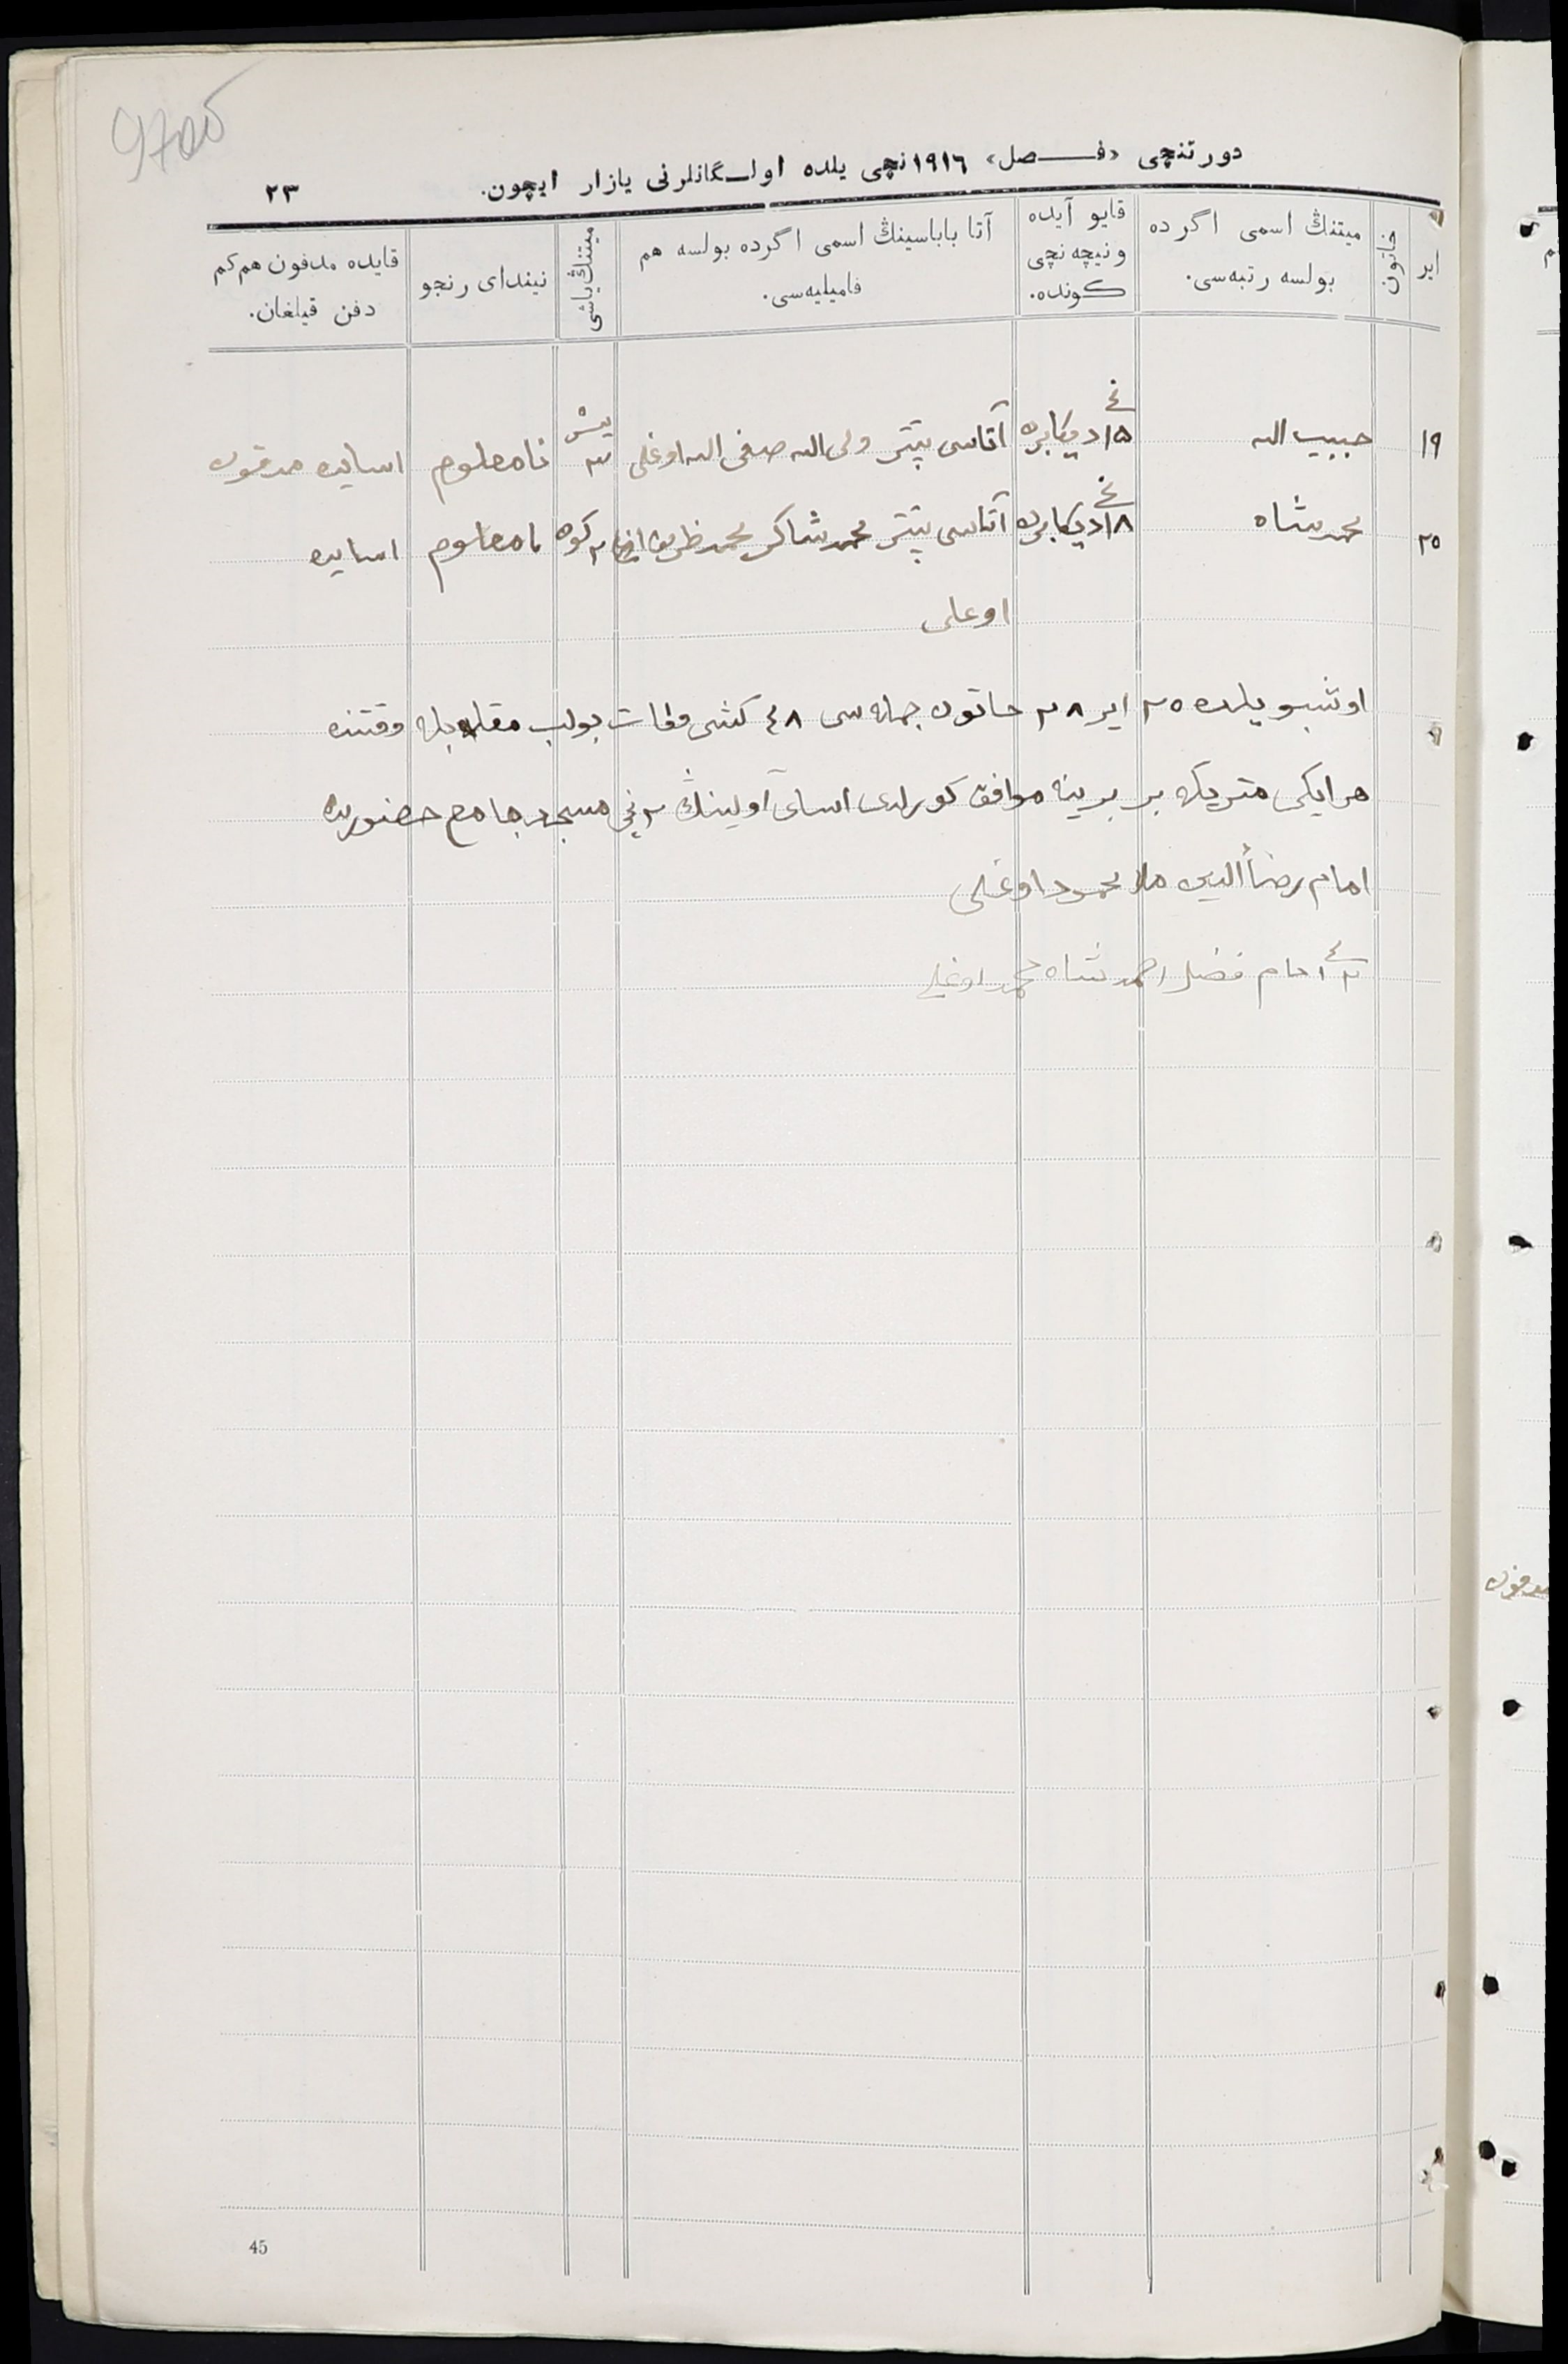 دورتنچی «فـــصل» ١٩١٦نچی یلده اولـگانلرنی یازار ایچون. ٢٣
ایر خاتون میتنڭ اسمی اگرده بولسه رتبه‌سی. قایو آیده ونیچه نچی کونده. آتا باباسینڭ اسمی اگرده بولسه هم فامیلیه‌سی. میتنڭ یاشی نیندای رنجو قایده مدفون هم کم دفن قیلغان.
١٩ حبیب الله ١٥ نچی دیکابرده آتاسی یتتر ولی الله صفی الله اوغلی ٣ یش نامعلوم اسایده مدفون
٢٠ محمدشاه ١٨ نچی دیکابرده آتاسی یتتر محمدشاکر محمدظریف ٢ کون نامعلوم اسایده
اوغلی
اوشبو یلده ٢٠ ایر ٢٨ خاتون جمله‌سی ٤٨ کشی وفات بولب مقابله وقتنده
هر ایکی متریکه بر برینه موافق کورلدی اسای آولینڭ ٢ نچی مسجد جامع حضورنده
امام رضاءالدین ملا محمود اوغلی
٢ نچی امام فضل احمدشاه محمد اوغلی
45